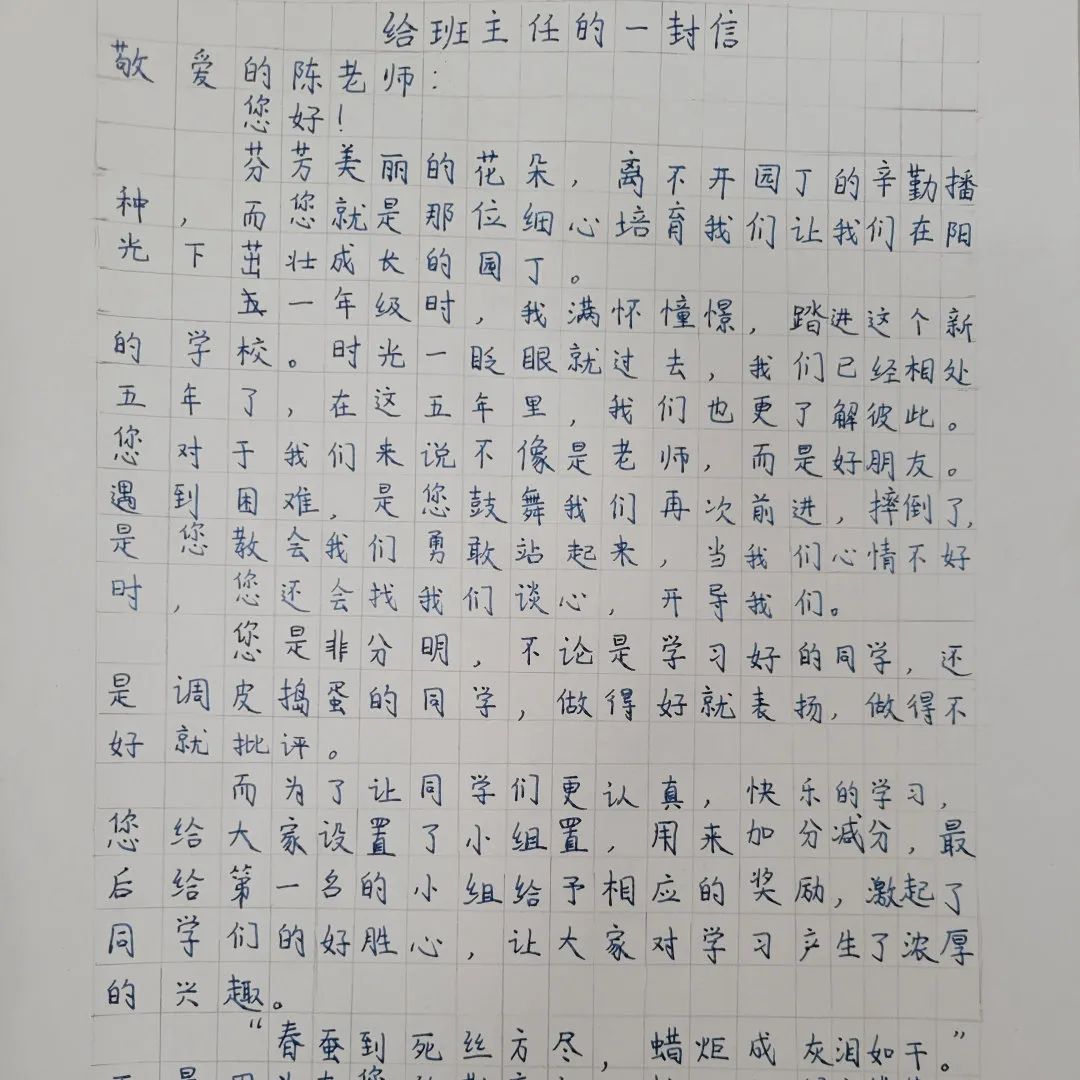 给班主任的一封信
敬爱的陈老师：
您好！
芬芳美丽的花朵，离不开园丁的辛勤播
种，而您就是那位细心培育我们让我们在阳
光下茁壮成长的园丁。
一年级时，我满怀憧憬，踏进这个新
的学校。时光一眨眼就过去，我们已经相处
五年了，在这五年里，我们也更了解彼此。
您对于我们来说不像是老师，而是好朋友。
遇到困难，是您鼓舞我们再次前进，摔倒了，
是您教会我们勇敢站起来，当我们心情不好
时，您还会找我们谈心，开导我们。
您是非分明，不论是学习好的同学，还
是调皮捣蛋的同学，做得好就表扬，做得不
好就批评。
而为了让同学们更认真，快乐的学习，
您给大家设置了小组置，用来加分减分，最
后给第一名的小组给予相应的奖励，激起了
同学们的好胜心，让大家对学习产生了浓厚
的兴趣。
“春蚕到死丝方尽，蜡炬成灰泪如干。”